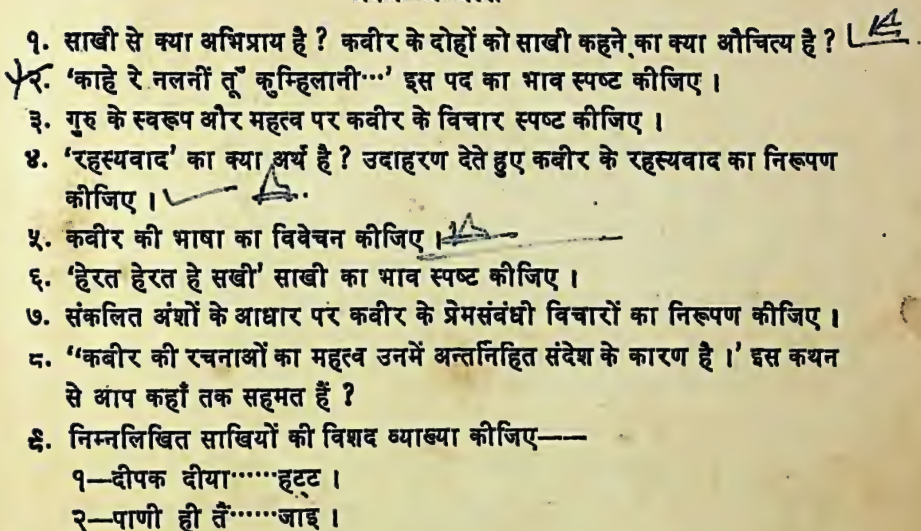 १. साखी से क्या अभिप्राय है ? कबीर के दोहों को साखी कहने का क्या औचित्य है ?
२. ‘काहे रे नलनीं तूँ कुम्हिलानी…’ इस पद का भाव स्पष्ट कीजिए ।
३. गुरु के स्वरूप और महत्व पर कबीर के विचार स्पष्ट कीजिए ।
४. ‘रहस्यवाद’ का क्या अर्थ है ? उदाहरण देते हुए कबीर के रहस्यवाद का निरूपण
कीजिए ।
५. कबीर की भाषा का विवेचन कीजिए ।
६. ‘हेरत हेरत हे सखी’ साखी का भाव स्पष्ट कीजिए ।
७. संकलित अंशों के आधार पर कबीर के प्रेमसंबंधी विचारों का निरूपण कीजिए ।
८. “कबीर की रचनाओं का महत्व उनमें अन्तर्निहित संदेश के कारण है ।’ इस कथन
से आप कहाँ तक सहमत हैं ?
९. निम्नलिखित साखियों की विशद व्याख्या कीजिए——
१—दीपक दीया……हट्ट ।
२—पाणी ही तैं……जाइ ।